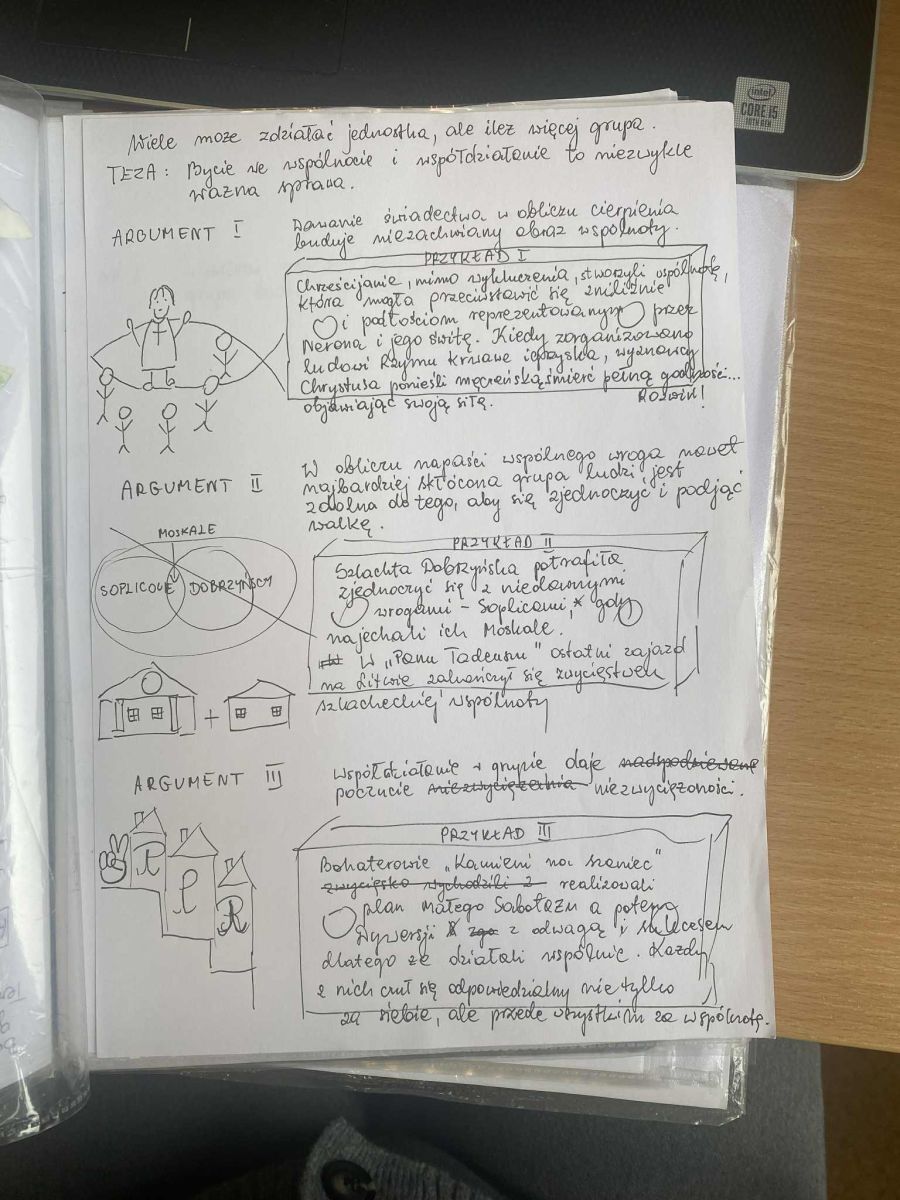 intel
CORE i5
10TH GEN
Wiele może zdziałać jednostka, ale ileż więcej grupa.
TEZA: Bycie we wspólnocie i współdziałanie to niezwykle
ważna sprawa.
ARGUMENT I
Dawanie świadectwa w obliczu cierpienia
buduje niezachwiany obraz wspólnoty.
PRZYKŁAD I
Chrześcijanie, mimo wykluczenia, stworzyli wspólnotę,
która mogła przeciwstawić się zniliźnie
i podłościom reprezentowanym przez
Nerona i jego świtę. Kiedy zorganizowano
ludowi Rzymu krwawe igrzyska, wyznawcy
Chrystusa ponieśli męczeńską śmierć pełną godności...
objawiając swoją siłę.
Rozwiń!
ARGUMENT II
W obliczu napaści wspólnego wroga nawet
najbardziej skłócona grupa ludzi jest
zdolna do tego, aby się zjednoczyć i podjąć
walkę.
MOSKALE
SOPLICOWE
DOBRZYŃSCY
PRZYKŁAD II
Szlachta Dobrzyńska potrafiła
zjednoczyć się z niedawnymi
wrogami – Soplicami, gdy
najechali ich Moskale.
W „Panu Tadeuszu" ostatni zajazd
na Litwie zakończył się zwycięstwem
szlacheckiej wspólnoty
ARGUMENT III
Współdziałanie w grupie daje nadspodziewane
poczucie niezwyciężenia niezwyciężoności.
R
P
R
PRZYKŁAD III
Bohaterowie „Kamieni na szaniec"
zwycięsko wychodzili z realizowali
plan Małego Sabotażu a potem
Dywersji z odwagą i sukcesem
dlatego że działali wspólnie. Każdy
z nich czuł się odpowiedzialny nie tylko
za siebie, ale przede wszystkim za wspólnotę.